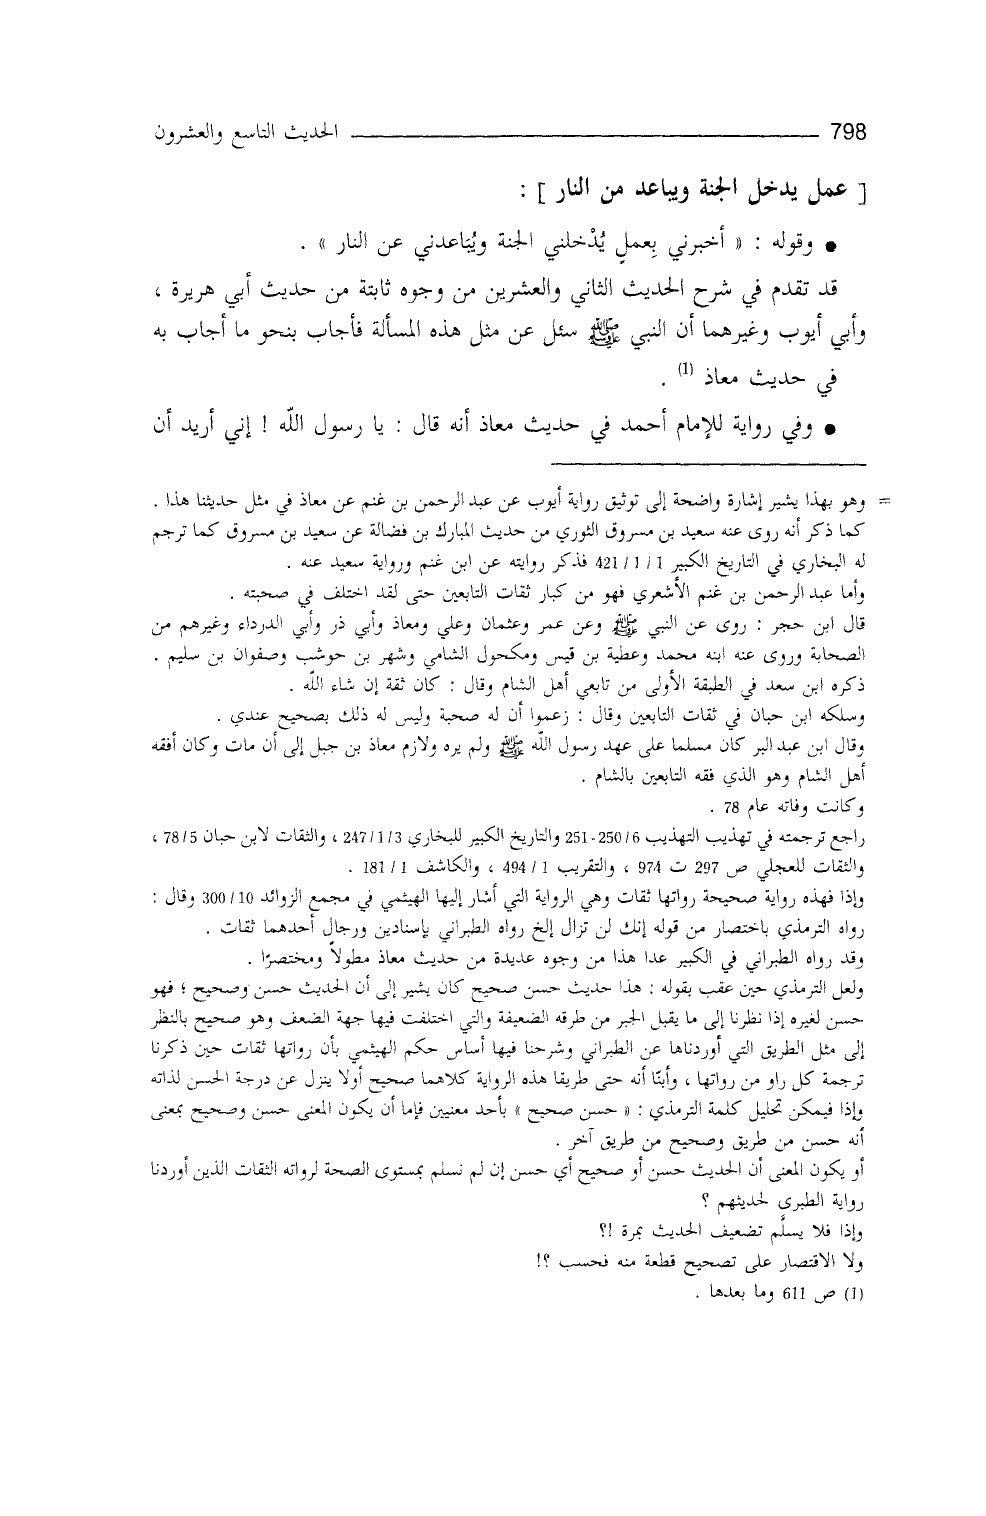 798 الحديث التاسع والعشرون
[ عمل يدخل الجنة ويباعد من النار ] :
● وقوله : « أخبرني بِعملٍ يُدْخلني الجنة ويُبَاعدني عن النار » .
قد تقدم في شرح الحديث الثاني والعشرين من وجوه ثابتة من حديث أبي هريرة ،
وأبي أيوب وغيرهما أن النبي ﷺ سئل عن مثل هذه المسألة فأجاب بنحو ما أجاب به
في حديث معاذ (1) .
● وفي رواية للإمام أحمد في حديث معاذ أنه قال : يا رسول اللّه ! إني أريد أن
= وهو بهذا يشير إشارة واضحة إلى توثيق رواية أيوب عن عبد الرحمن بن غنم عن معاذ في مثل حديثنا هذا .
كما ذكر أنه روى عنه سعيد بن مسروق الثوري من حديث المبارك بن فضالة عن سعيد بن مسروق كما ترجم
له البخاري في التاريخ الكبير 1 / 1 / 421 فذكر روايته عن ابن غنم ورواية سعيد عنه .
وأما عبد الرحمن بن غنم الأشعري فهو من كبار ثقات التابعين حتى لقد اختلف في صحبته .
قال ابن حجر : روى عن النبي ﷺ وعن عمر وعثمان وعلي ومعاذ وأبي ذر وأبي الدرداء وغيرهم من
الصحابة وروى عنه ابنه محمد وعطية بن قيس ومكحول الشامي وشهر بن حوشب وصفوان بن سليم .
ذكره ابن سعد في الطبقة الأولى من تابعي أهل الشام وقال : كان ثقة إن شاء اللّه .
وسلكه ابن حبان في ثقات التابعين وقال : زعموا أن له صحبة وليس له ذلك بصحيح عندي .
وقال ابن عبد البر كان مسلما على عهد رسول اللّه ﷺ ولم يره ولازم معاذ بن جبل إلى أن مات وكان أفقه
أهل الشام وهو الذي فقه التابعين بالشام .
وكانت وفاته عام 78 .
راجع ترجمته في تهذيب التهذيب 6/250-251 والتاريخ الكبير للبخاري 3/1/247 ، والثقات لابن حبان 5/78 ،
والثقات للعجلي ص 297 ت 974 ، والتقريب 1 / 494 ، والكاشف 1 / 181 .
وإذا فهذه رواية صحيحة رواتها ثقات وهي الرواية التي أشار إليها الهيثمي في مجمع الزوائد 10/ 300 وقال :
رواه الترمذي باختصار من قوله إنك لن تزال إلخ رواه الطبراني بإسنادين ورجال أحدهما ثقات .
وقد رواه الطبراني في الكبير عدا هذا من وجوه عديدة من حديث معاذ مطولاً ومختصرًا .
ولعل الترمذي حين عقب بقوله : هذا حديث حسن صحيح كان يشير إلى أن الحديث حسن وصحيح ؛ فهو
حسن لغيره إذا نظرنا إلى ما يقبل الجبر من طرقه الضعيفة والتي اختلفت فيها جهة الضعف وهو صحيح بالنظر
إلى مثل الطريق التي أوردناها عن الطبراني وشرحنا فيها أساس حكم الهيثمي بأن رواتها ثقات حين ذكرنا
ترجمة كل راو من رواتها ، وأبنّا أنه حتى طريقا هذه الرواية كلاهما صحيح أولا ينزل عن درجة الحسن لذاته
وإذا فيمكن تحليل كلمة الترمذي : « حسن صحيح » بأحد معنيين فإما أن يكون المعنى حسن وصحيح بمعنى
أنه حسن من طريق وصحيح من طريق آخر .
أو يكون المعنى أن الحديث حسن أو صحيح أي حسن إن لم نسلم بمستوى الصحة لرواته الثقات الذين أوردنا
رواية الطبرى لحديثهم ؟
وإذا فلا يسلَّم تضعيف الحديث بمرة !؟
ولا الاقتصار على تصحيح قطعة منه فحسب ؟!
(1) ص 611 وما بعدها .